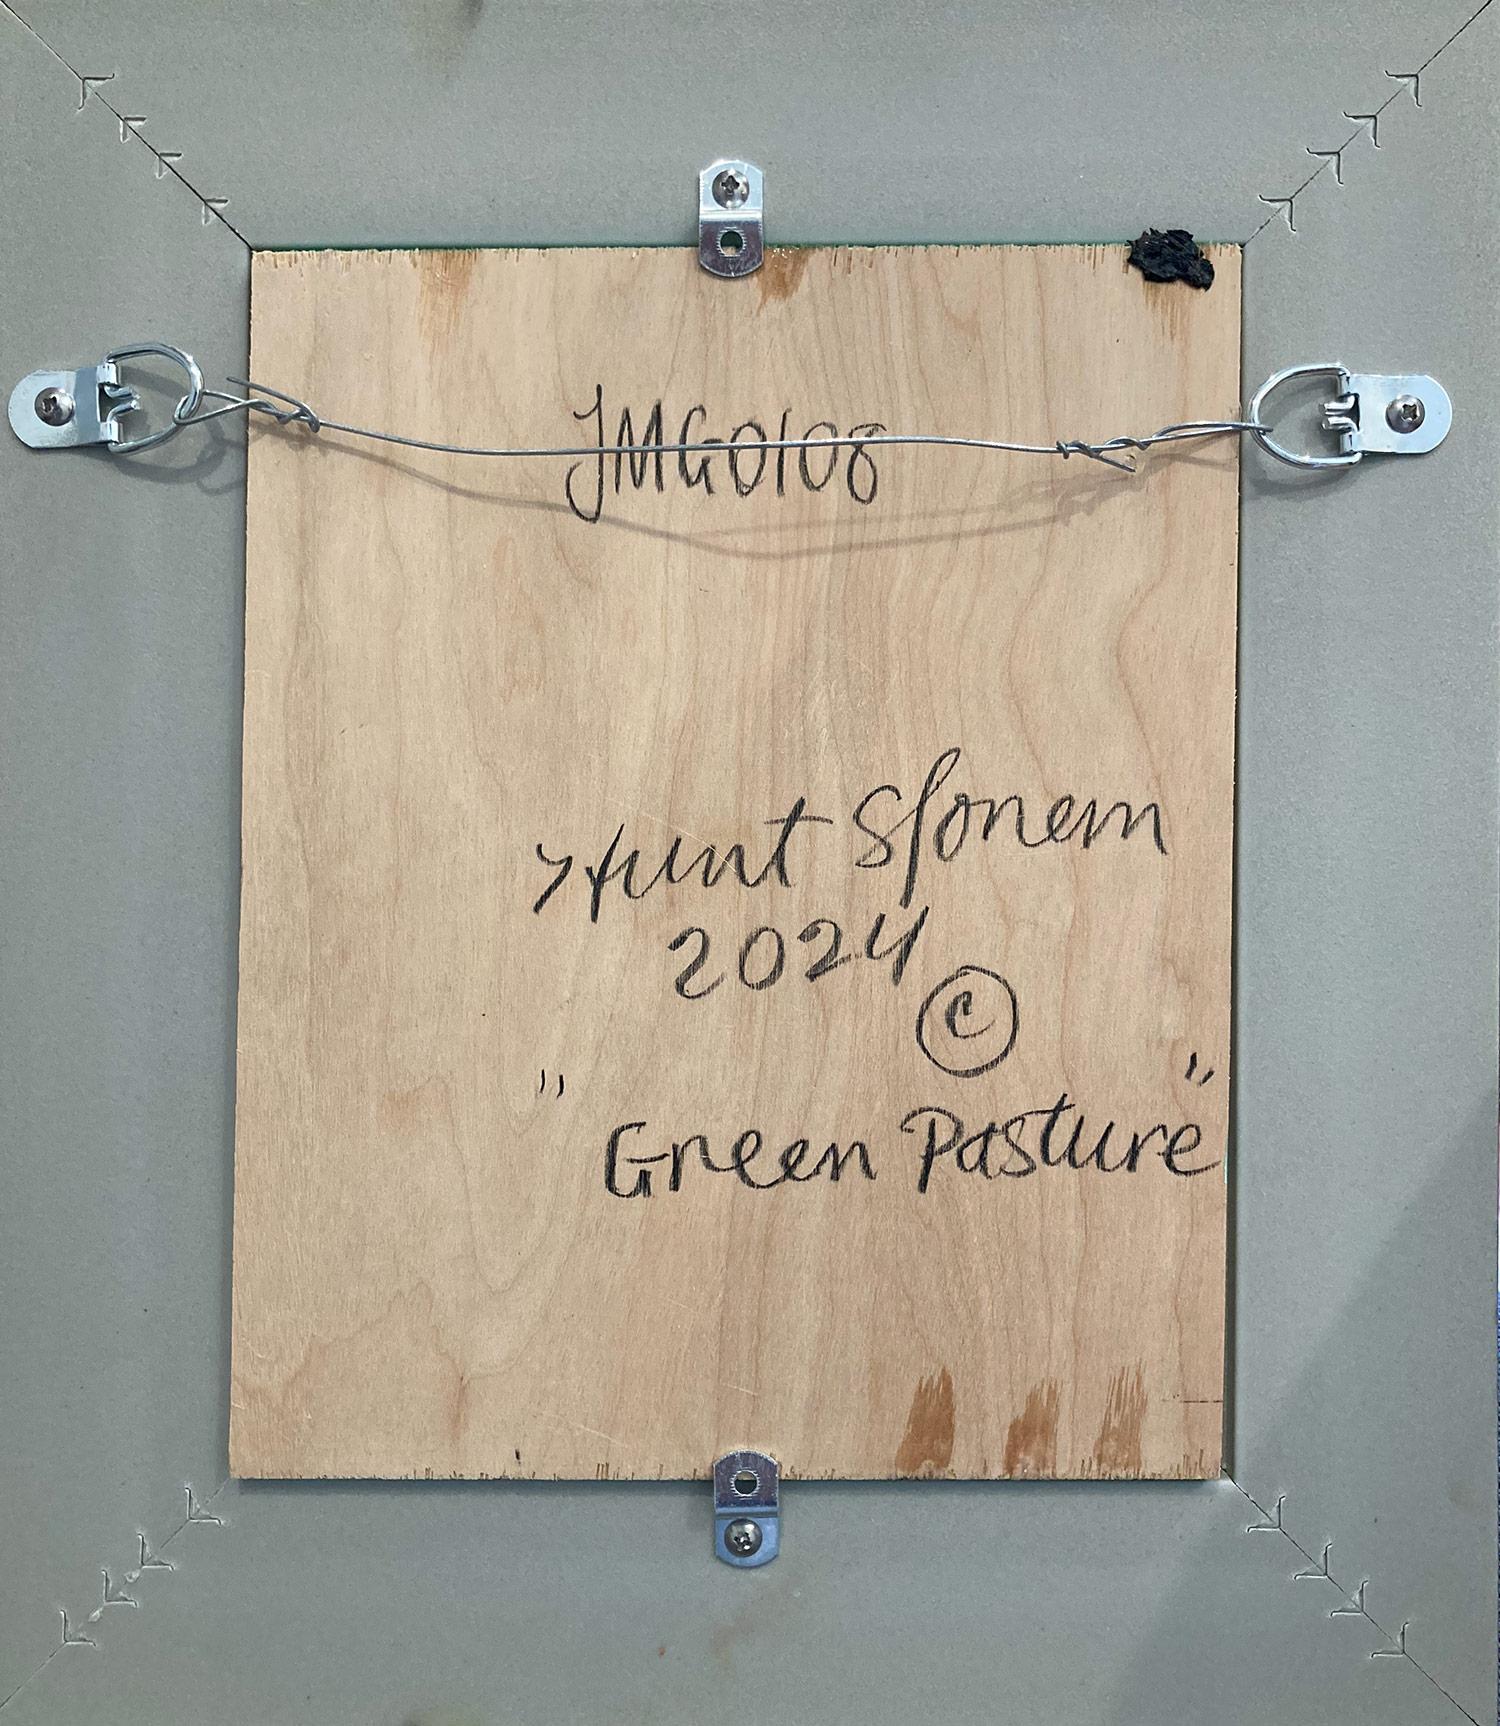 JMG0108
Hunt Slonem
2024
©
"Green Pasture"